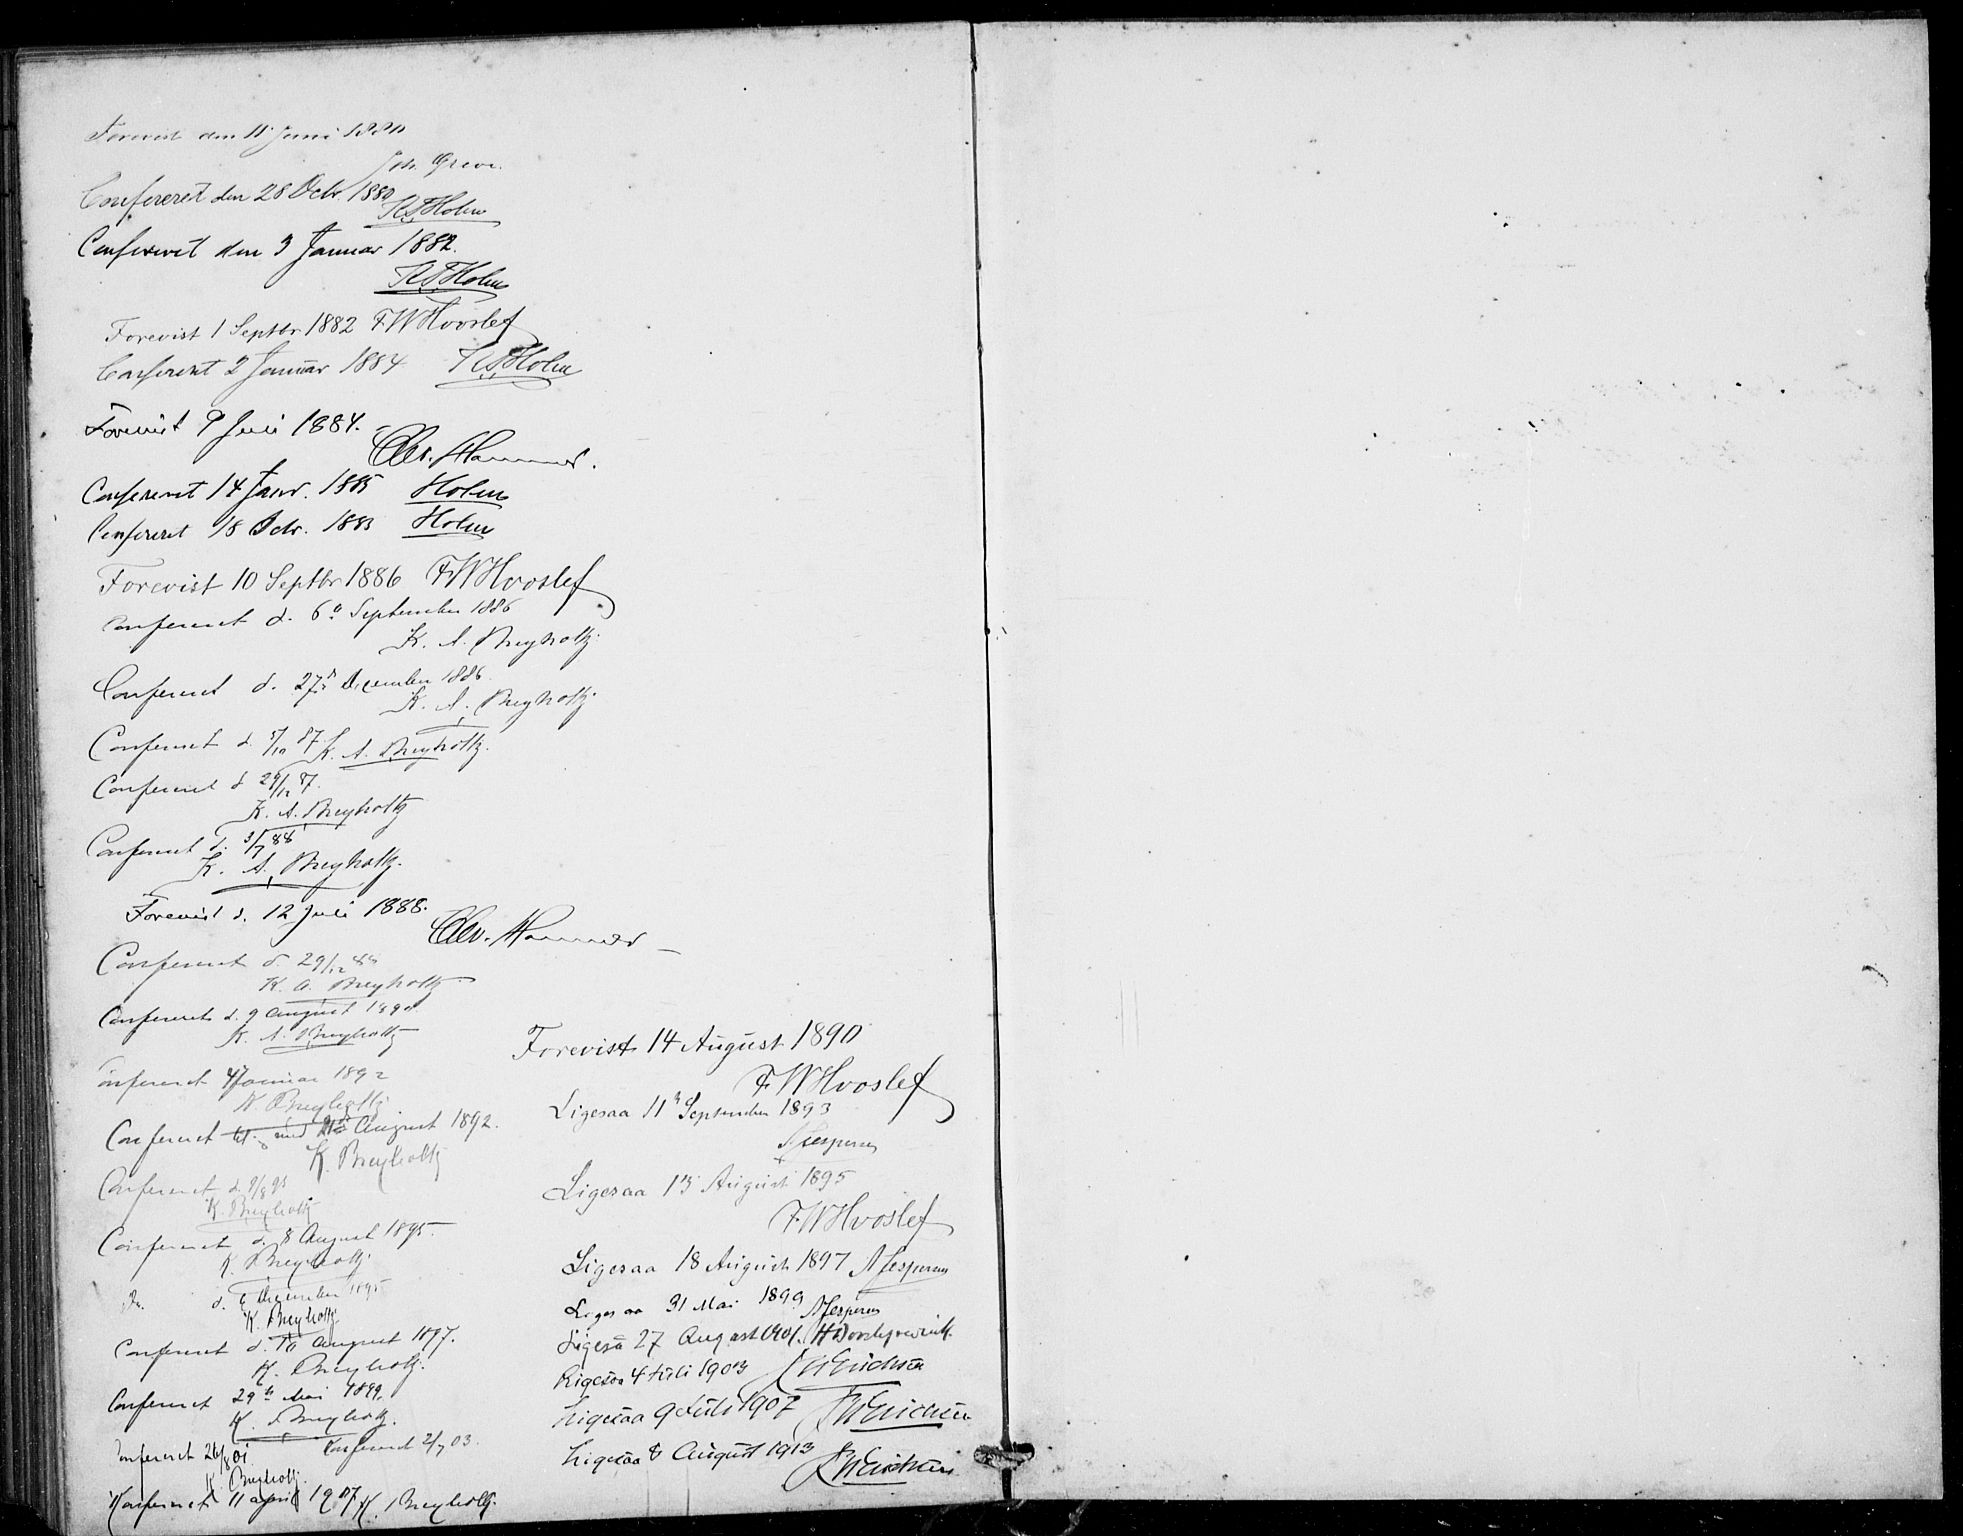 Forevist den 11 Juni 1880
Joh. Greve.
Confereret den 28 Octr. 1880
Holm
Confereret den 3 Januar 1882.
Holm
Forevist 1 Septbr 1882 FWHvoslef
Confereret 2 Januar 1884 Holm
Forevist 9 Juli 1884.
Chr. Hammer.
Confereret 14 Janr. 1885 Holm
Confereret 18 Octr. Holm
Forevist 10 Septbr 1886 FWHvoslef
Confereret d. 6te September 1886
K. A. Breyholtz.
Confereret d. 27de December 1886.
K. A. Breyholtz
Confereret d. 87. K. A. Breyholtz.
Confereret d 29/12 87.
K. A. Breyholtz
Confereret d. 3/7 88
K. A. Breyholtz.
Forevist d. 12 Juli 1888.
Hammer
Confereret d. 29/12 88
K. A. Breyholtz
Confereret d. 9 August 1890.
K. A. Breyholtz
Confereret 4 Januar 1892
K. Breyholtz
Confereret August 1892.
K. Breyholtz
Confereret d. 9/8 93
K. Breyholtz
Confereret d. 8 August 1895.
K. Breyholtz.
Do. d. December 1895
K. Breyholtz
Confereret d. August 1897.
K. Breyholtz.
Confereret 29de Mai 1899.
K. Breyholtz.
Confereret 26/8 01. Confereret 2/7 03.
K. Breyholtz.
Konfereret 11 april 1907 K. Breyholtz.
Forevist 14 August 1890
FWHvoslef
Ligesaa 11te September 1893
Jespersen
Ligesaa 13 August 1895
FWHvoslef
Ligesaa 18 August 1897 Jespersen
Ligesaa 31 Mai 1899 Jespersen
Ligesaa 27 August 1901.
Ligesaa 4 Juli 1903 Erichsen
Ligesaa 9 Juli 1907 Erichsen
Ligesaa 8 August 1913 Erichsen